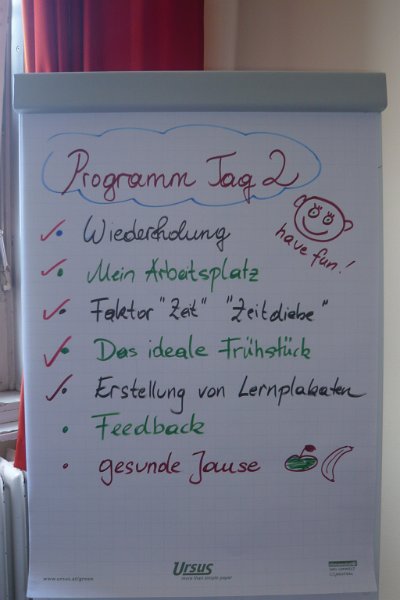 Programm Tag 2
have fun!
Wiederholung
Mein Arbeitsplatz
Faktor "Zeit" "Zeitdiebe"
Das ideale Frühstück
Erstellung von Lernplakaten
Feedback
gesunde Jause
www.ursus.at/green
URSUS
more than simple paper